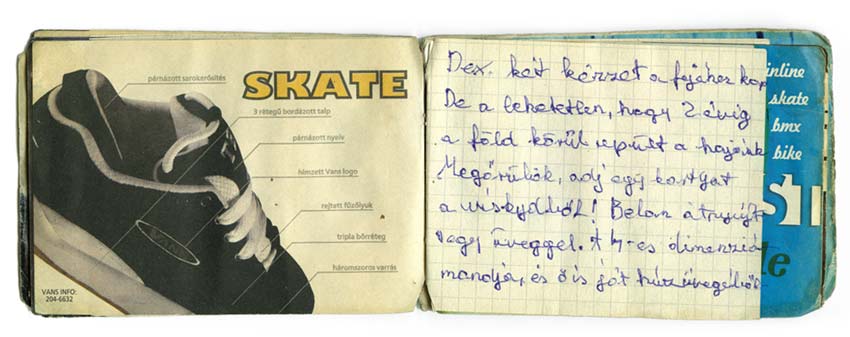 SKATE
párnázott sarokerősítés
3 rétegű bordázott talp
párnázott nyelv
hímzett Vans logo
rejtett fűzőlyuk
tripla bőrréteg
háromszoros varrás
VANS
VANS INFO:
204-6632
Dex. két kézzel a fejéhez kap
De a lehetetlen, hogy 2 évig
a föld körül repült a hajónk
Megőrülök, adj egy kortyot
a whiskydből! Belon átnyújt
egy üveggel. A 4-es dimenzió
mondja, és ő is jót húz üvegéből
inline
skate
bmx
bike